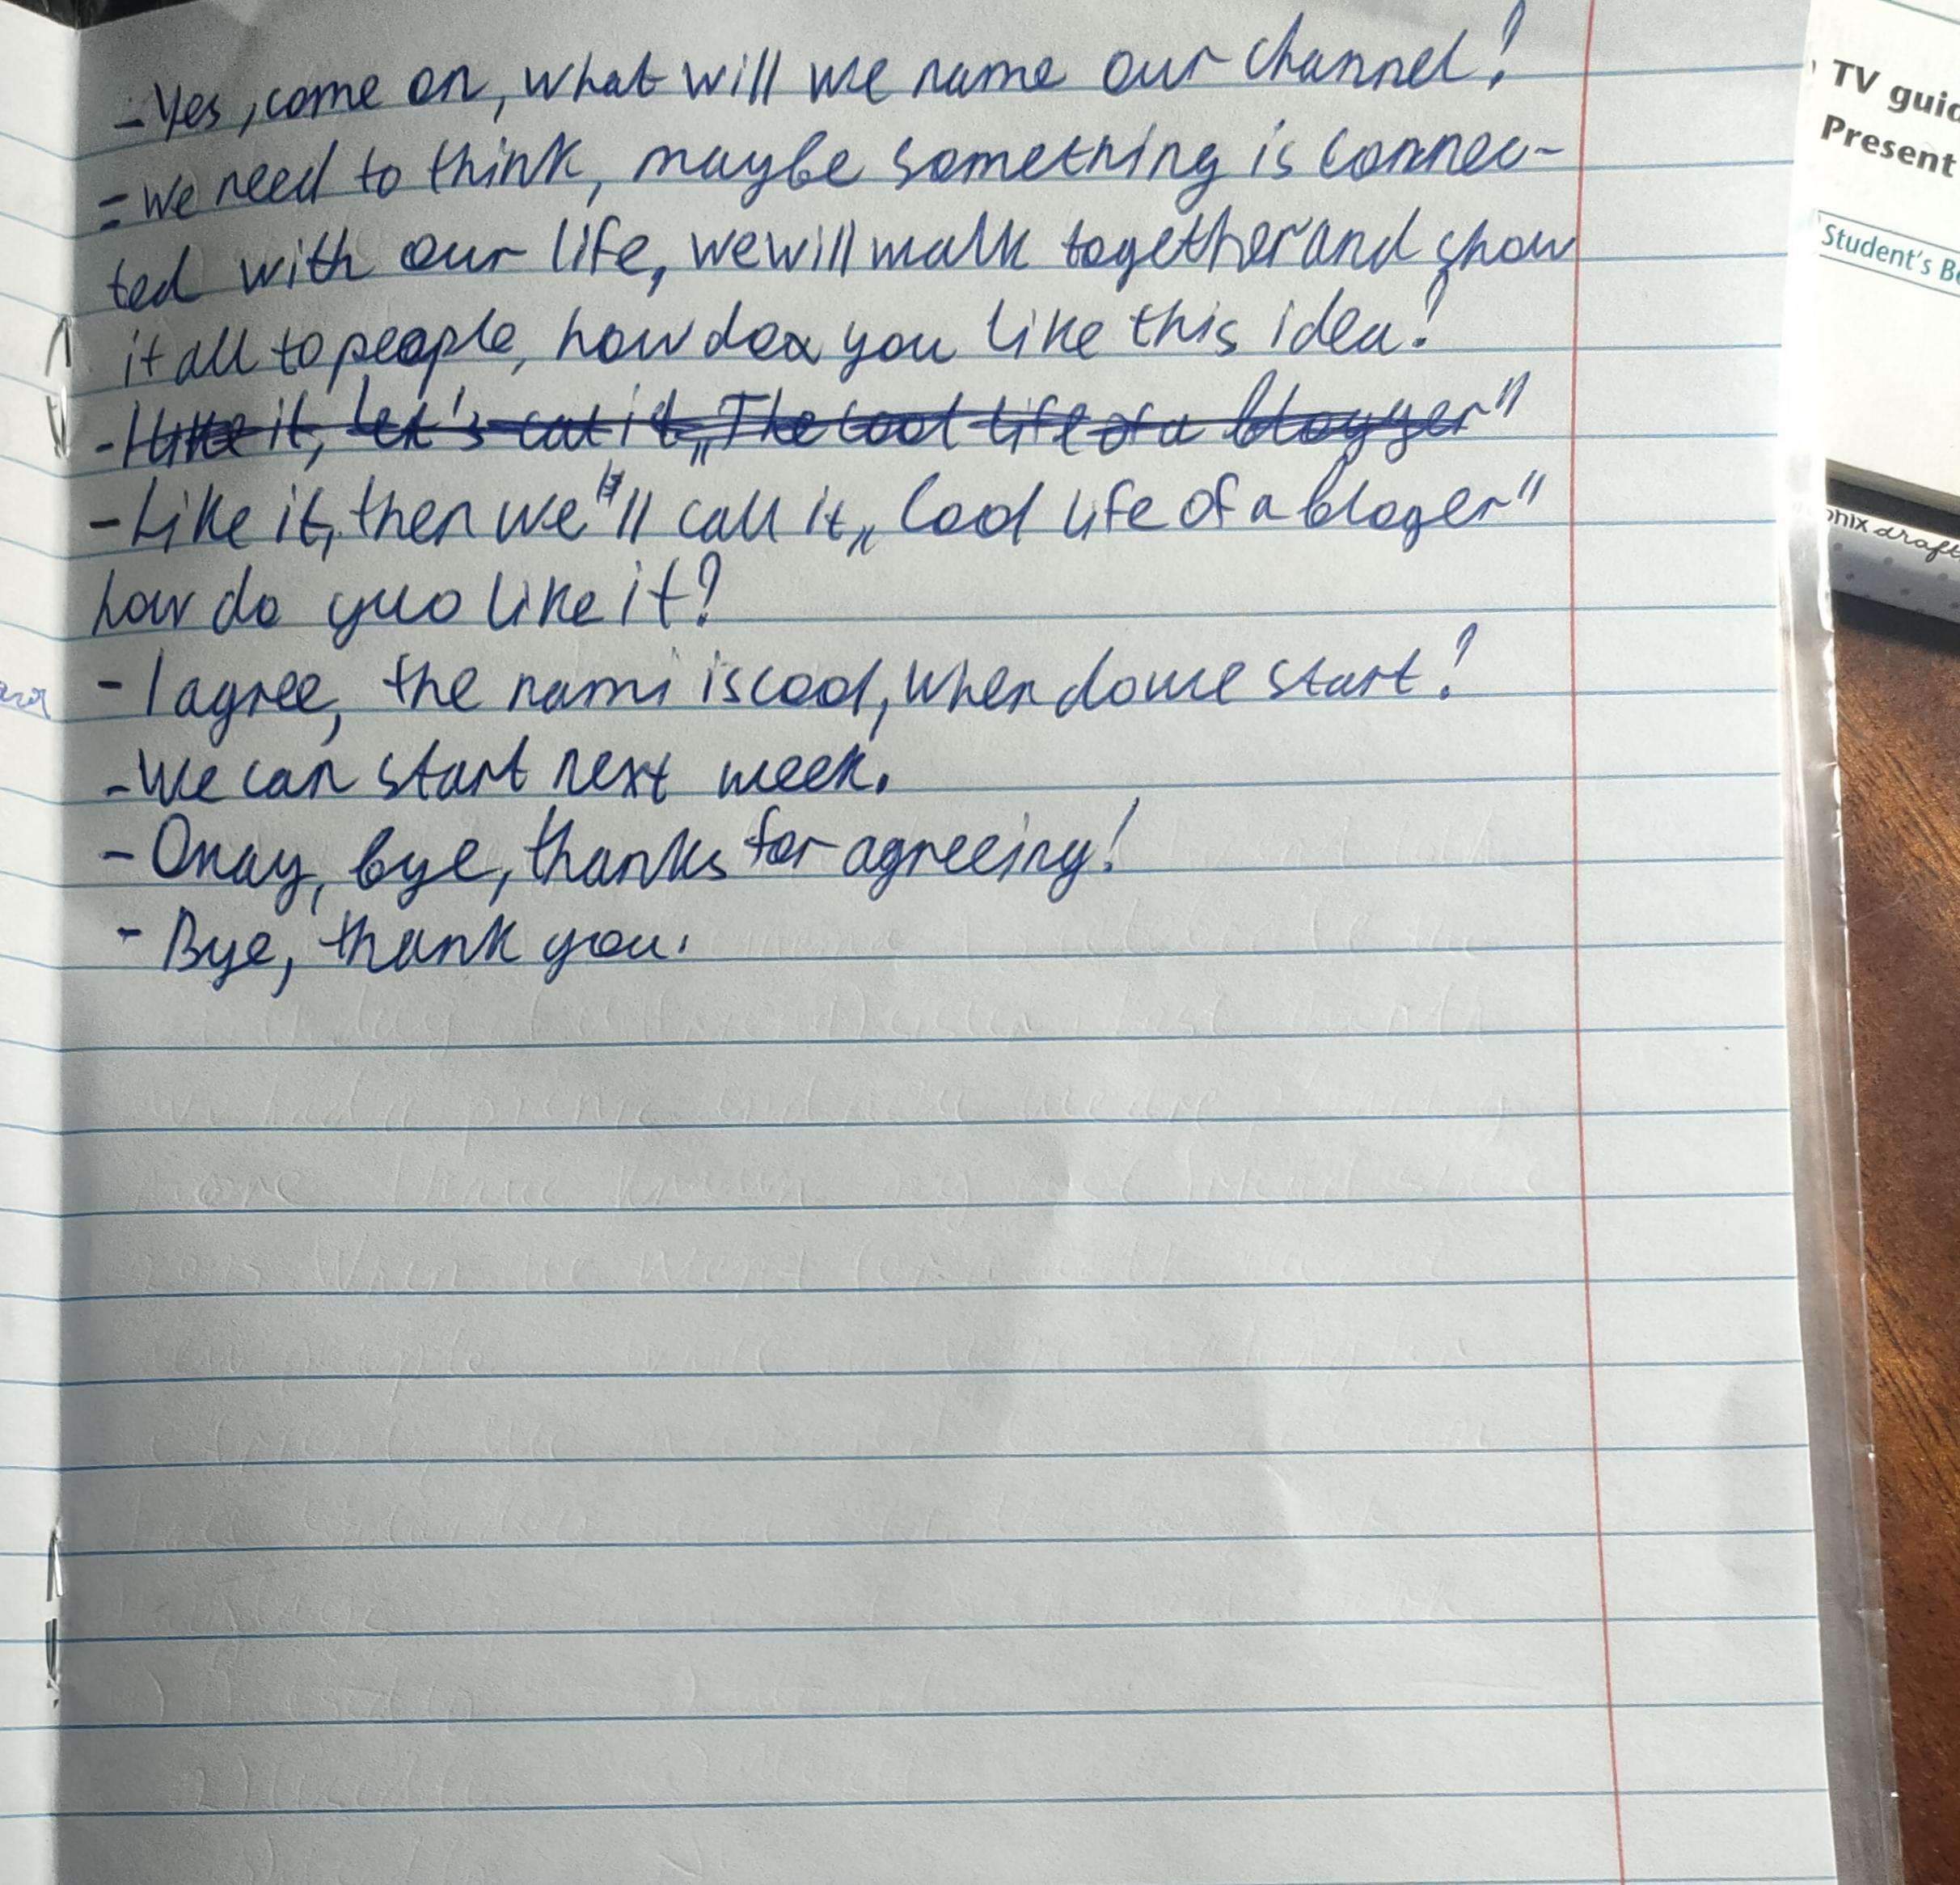 - Yes, come on, what will we name our channel?
= we need to think, maybe something is connec-
ted with our life, we will walk together and show
it all to people, how do you like this idea?
- I like it, let's call it „The cool life of a blogger"
- Like it, then we'll call it „Cool life of a bloger"
how do yuo like it?
- I agree, the nami is cool, when do we start?
- We can start next week.
- Okay, bye, thanks for agreeing!
- Bye, thank you.
TV guid
Present
Student's B
onix draft